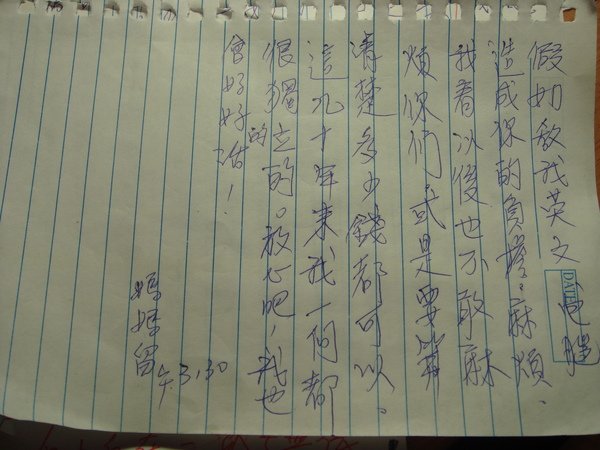 假如教我英文電腦
造成你的負擔.麻煩.
我看以後也不敢麻
煩你們或是要算
清楚多少錢都可以。
這九十年來我一向都
很獨立的。放心吧!我也
會好好的活!
媽媽留
3,30
DATE